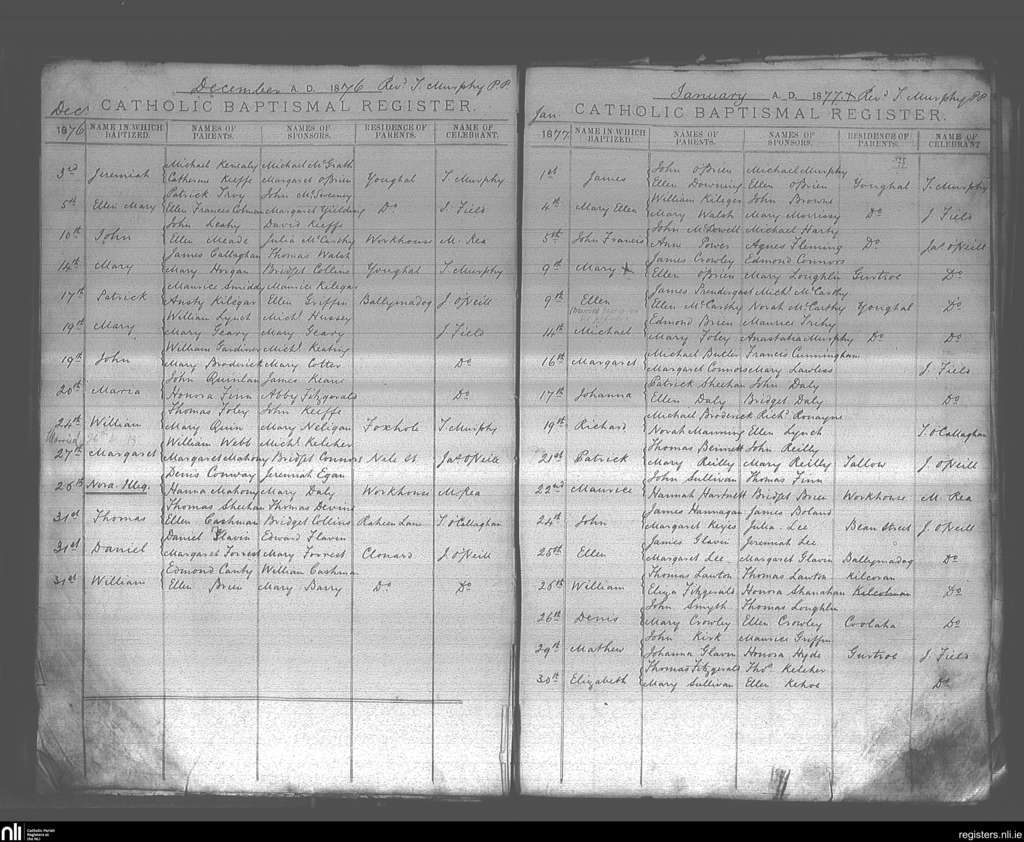 December A. D. 1876 Revd. T. Murphy P.P.
Dec CATHOLIC BAPTISMAL REGISTER.
1876 NAME IN WHICH BAPTIZED. NAMES OF PARENTS. NAMES OF SPONSORS. RESIDENCE OF PARENTS. NAME OF CELEBRANT.
Michael Kenealy Michael McGrath
3rd Jeremiah Catherine Keeffe Margaret O'Brien Youghal T. Murphy
Patrick Troy John McSweeney
5th Ellen Mary Ellen Frances Colman Margaret Yielding Do J. Field
John Leahy David Keeffe
10th John Ellen Meade Julia McCarthy Workhouse M. Rea
James Callaghan Thomas Walsh
14th Mary Mary Horgan Bridget Collins Youghal T. Murphy
Maurice Smiddy Maurice Kilegar
17th Patrick Ansty Kilegar Ellen Griffin Ballymadog J. O'Neill
William Lynch Michl. Hussey
19th Mary Mary Geary Mary Geary J. Field
William Gardiner Michl. Keating
19th John Mary Broderick Mary Cotter Do
John Quinlan James Keane
20th Maria Honora Finn Abby Fitzgerald Do
Thomas Foley John Keeffe
24th William Mary Quin Mary Neligan Foxhole T. Murphy
Married
William Webb Michl. Keleher
27th Margaret Margaret Mahony Bridget Connors Nile St Jas. O'Neill
Denis Conway Jeremiah Egan
26th Nora. Illeg. Hanna Mahony Mary Daly Workhouse M. Rea
Thomas Sheehan Thomas Devine
31st Thomas Ellen Cashman Bridget Collins Raheen Lane T. O'Callaghan
Daniel Slavin Edward Flavin
31st Daniel Margaret Forrest Mary Forrest Clonard J. O'Neill
Edmond Canty William Cashman
31st William Ellen Brien Mary Barry Do Do
January A. D. 1877 + Revd. T. Murphy P.P.
Jan. CATHOLIC BAPTISMAL REGISTER.
1877. NAME IN WHICH BAPTIZED. NAMES OF PARENTS. NAMES OF SPONSORS. RESIDENCE OF PARENTS. NAME OF CELEBRANT
John O'Brien Michael Murphy
1st James Ellen Downing Ellen O'Brien Youghal T. Murphy
William Kilegar John Browne
4th Mary Ellen Mary Walsh Mary Morrissy Do J. Field
John McDowell Michael Harty
5th John Francis Anne Power Agnes Fleming Do Jas. O'Neill
James Crowley Edmond Connors
9th Mary + Ellen O'Brien Mary Loughlin Gurtroe Do
James Prendergast Michl. McCarthy
9th Ellen Ellen McCarthy Norah McCarthy Youghal Do
Edmond Brien Maurice Trihy
14th Michael Mary Foley Anastatia Murphy Do Do
Michael Butler Francis Cunningham
16th Margaret Margaret Connors Mary Lawless J. Field
Patrick Sheehan John Daly
17th Johanna Ellen Daly Bridget Daly Do
Michael Broderick Richd. Ronayne
19th Richard Norah Manning Ellen Lynch T. O'Callaghan
Thomas Bennett John Reilly
21st Patrick Mary Reilly Mary Reilly Tallow J. O'Neill
John Sullivan Thomas Finn
22nd Maurice Hannah Hartnett Bridget Brien Workhouse M. Rea
James Hannagan James Boland
24th John Margaret Keyes Julia Lee Bean Street J. O'Neill
James Glavin Jeremiah Lee
25th Ellen Margaret Lee Margaret Glavin Ballymadog Do
Thomas Lawton Thomas Lawton Kilcoran
25th William Eliza Fitzgerald Honora Shanahan Do
John Smyth Thomas Loughlin
26th Denis Mary Crowley Ellen Crowley Coolaha Do
John Kirk Maurice Griffin
29th Mathew Johanna Glavin Honora Hyde Gurtroe J. Field
Thomas Fitzgerald Thos. Keleher
30th Elizabeth Mary Sullivan Ellen Kehoe Do
nli Catholic Parish Registers at the NLI
registers.nli.ie